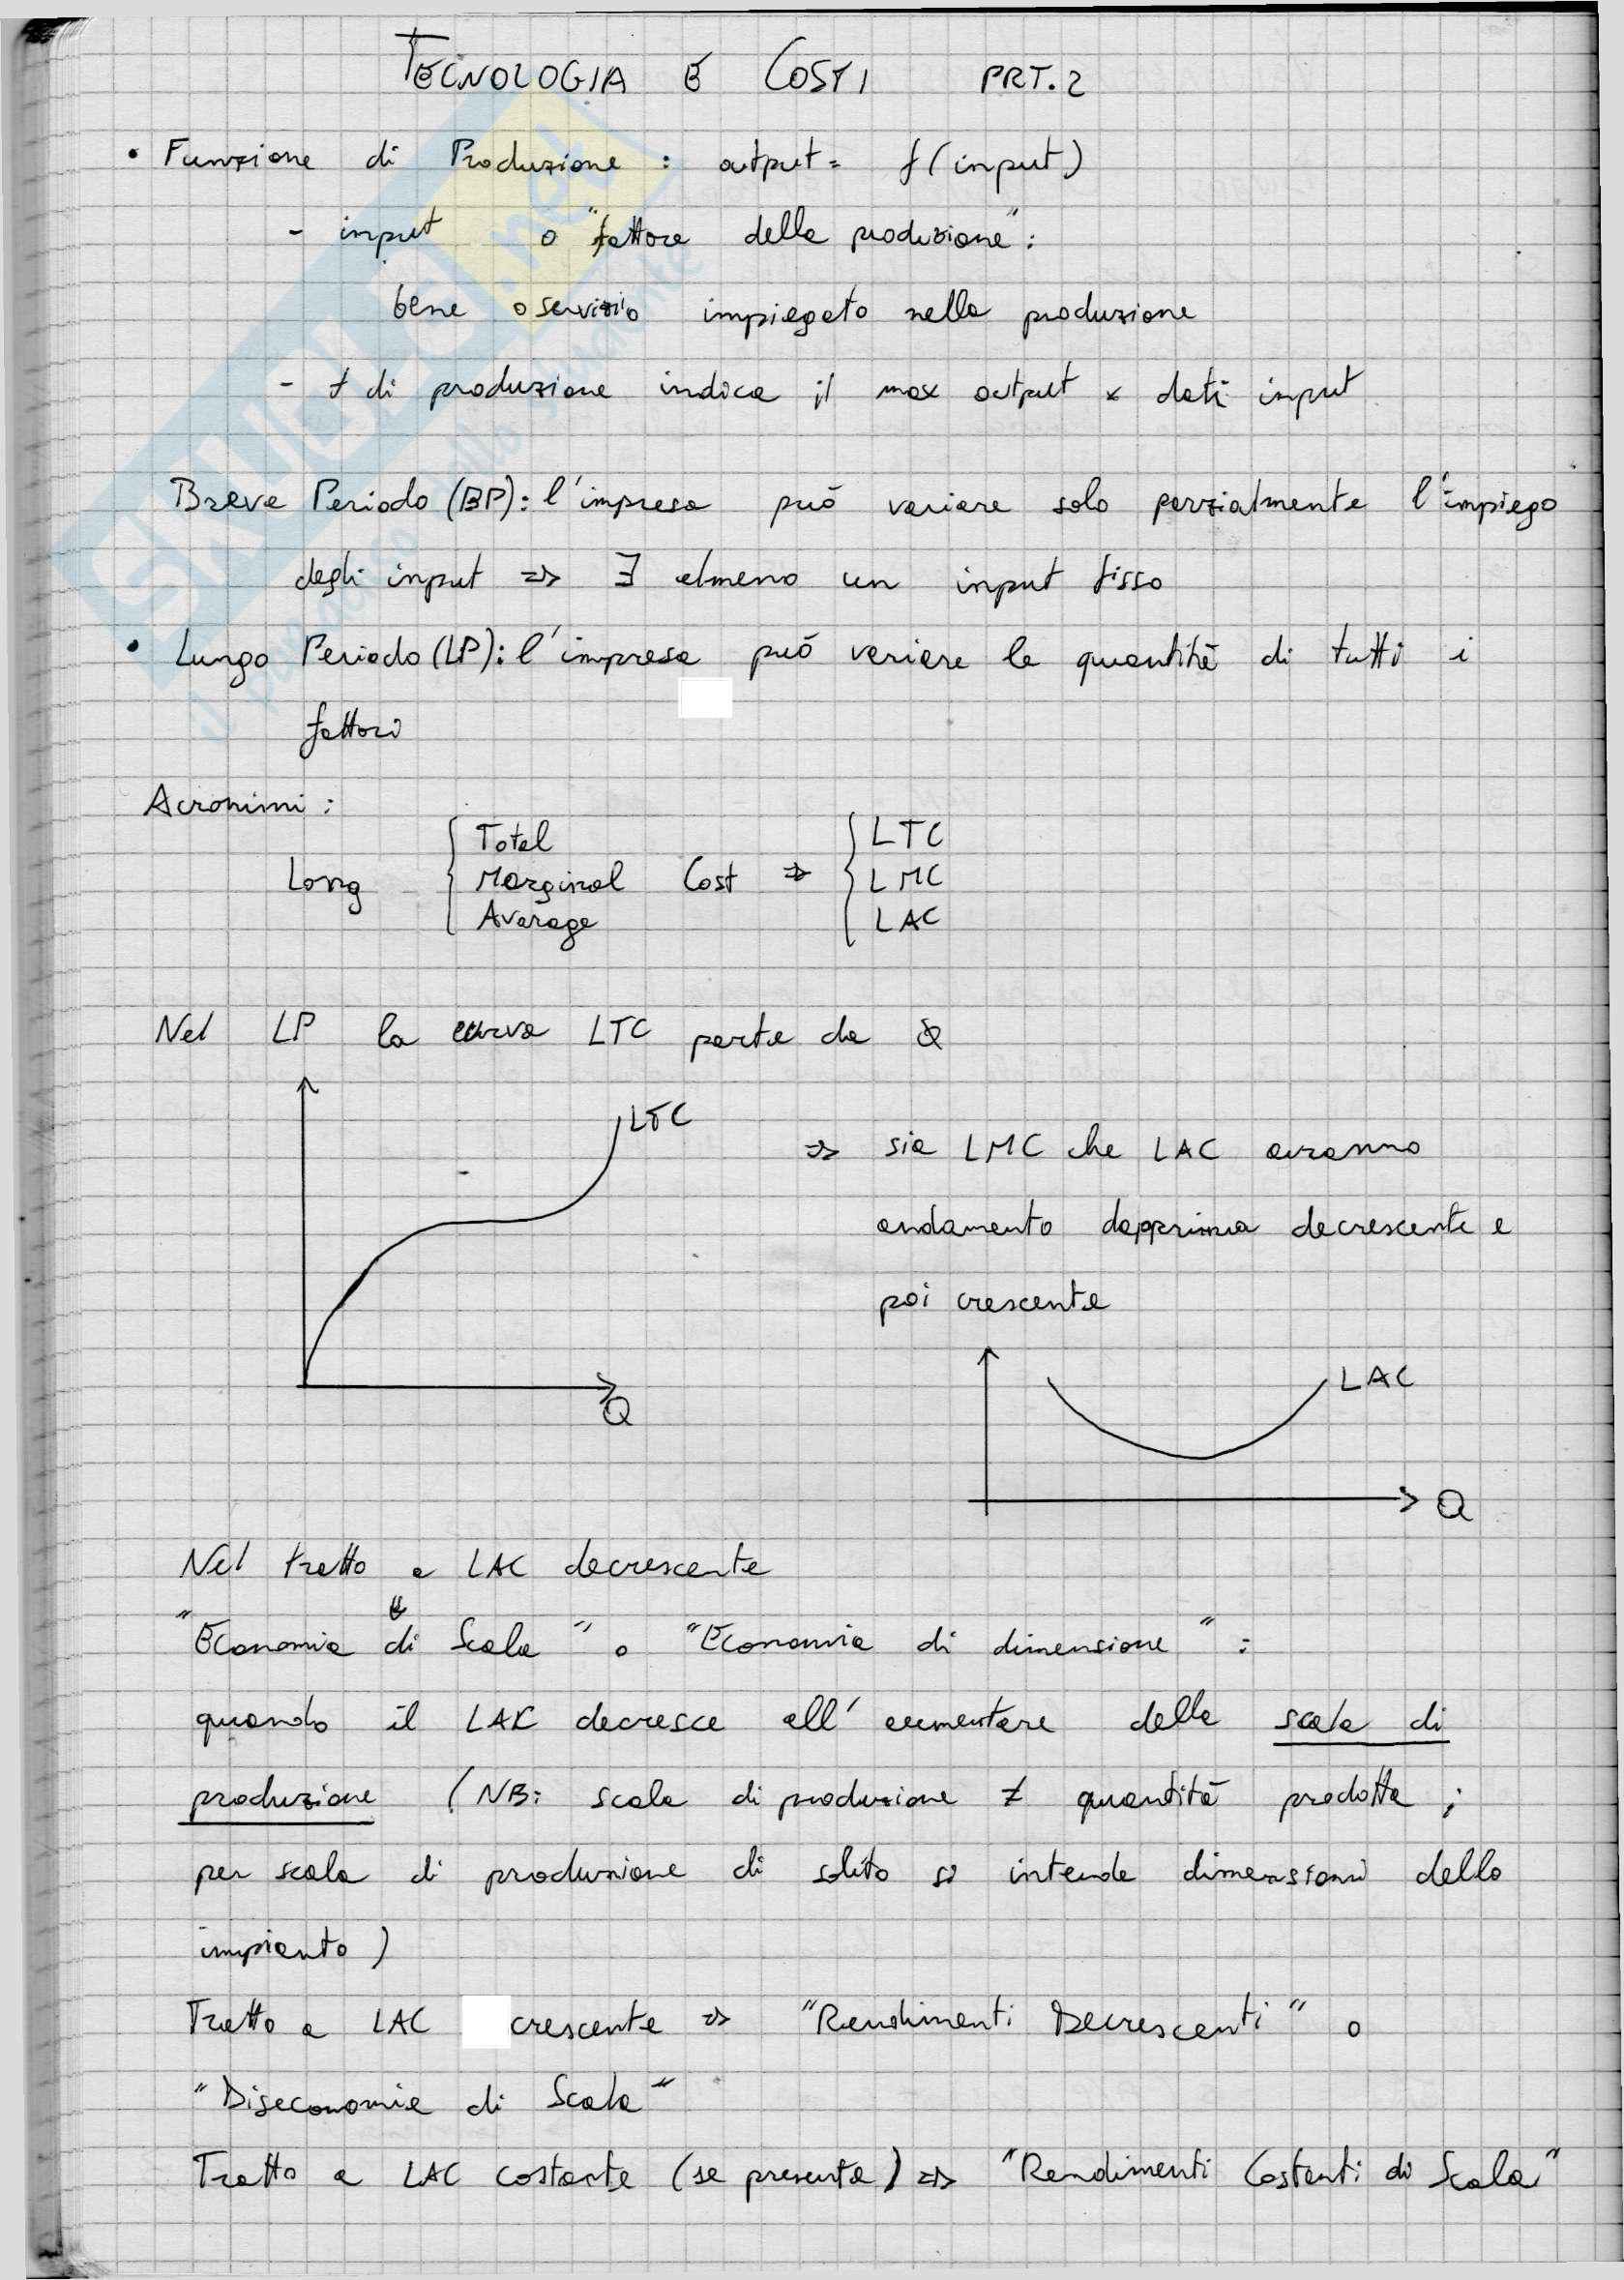 TECNOLOGIA E COSTI PRT.2
• Funzione di Produzione : output = f(input)
- input o "fattore della produzione" :
bene o servizio impiegato nella produzione
- f di produzione indica il max output x dati input
Breve Periodo (BP): l'impresa può variare solo parzialmente l'impiego
degli input => ∃ almeno un input fisso
• Lungo Periodo (LP): l'impresa può variare le quantità di tutti i
fattori
Acronimi :
Total LTC
Long Marginal Cost => LMC
Average LAC
Nel LP la curva LTC parte da
LTC
=> sia LMC che LAC avranno
andamento dapprima decrescente e
poi crescente
LAC
Q
Q
Nel tratto a LAC decrescente
"Economia di Scala" o "Economia di dimensione" :
quando il LAC decresce all'aumentare della scala di
produzione (NB: scala di produzione ≠ quantità prodotta ;
per scala di produzione di solito si intende dimensioni dello
impianto)
Tratto a LAC crescente => "Rendimenti Decrescenti" o
"Diseconomie di Scala"
Tratto a LAC costante (se presente) => "Rendimenti Costanti di Scala"